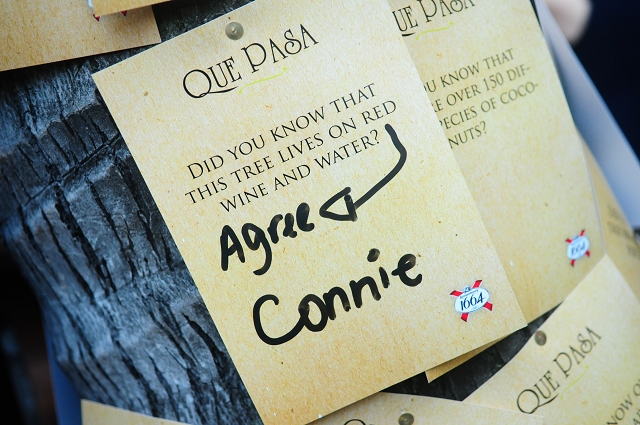 QUE PASA
DID YOU KNOW THAT
THIS TREE LIVES ON RED
WINE AND WATER?
Agree
Connie
1664
QUE PASA
YOU KNOW THAT
RE OVER 150 DIF-
SPECIES OF COCO-
NUTS?
1664
QUE PASA